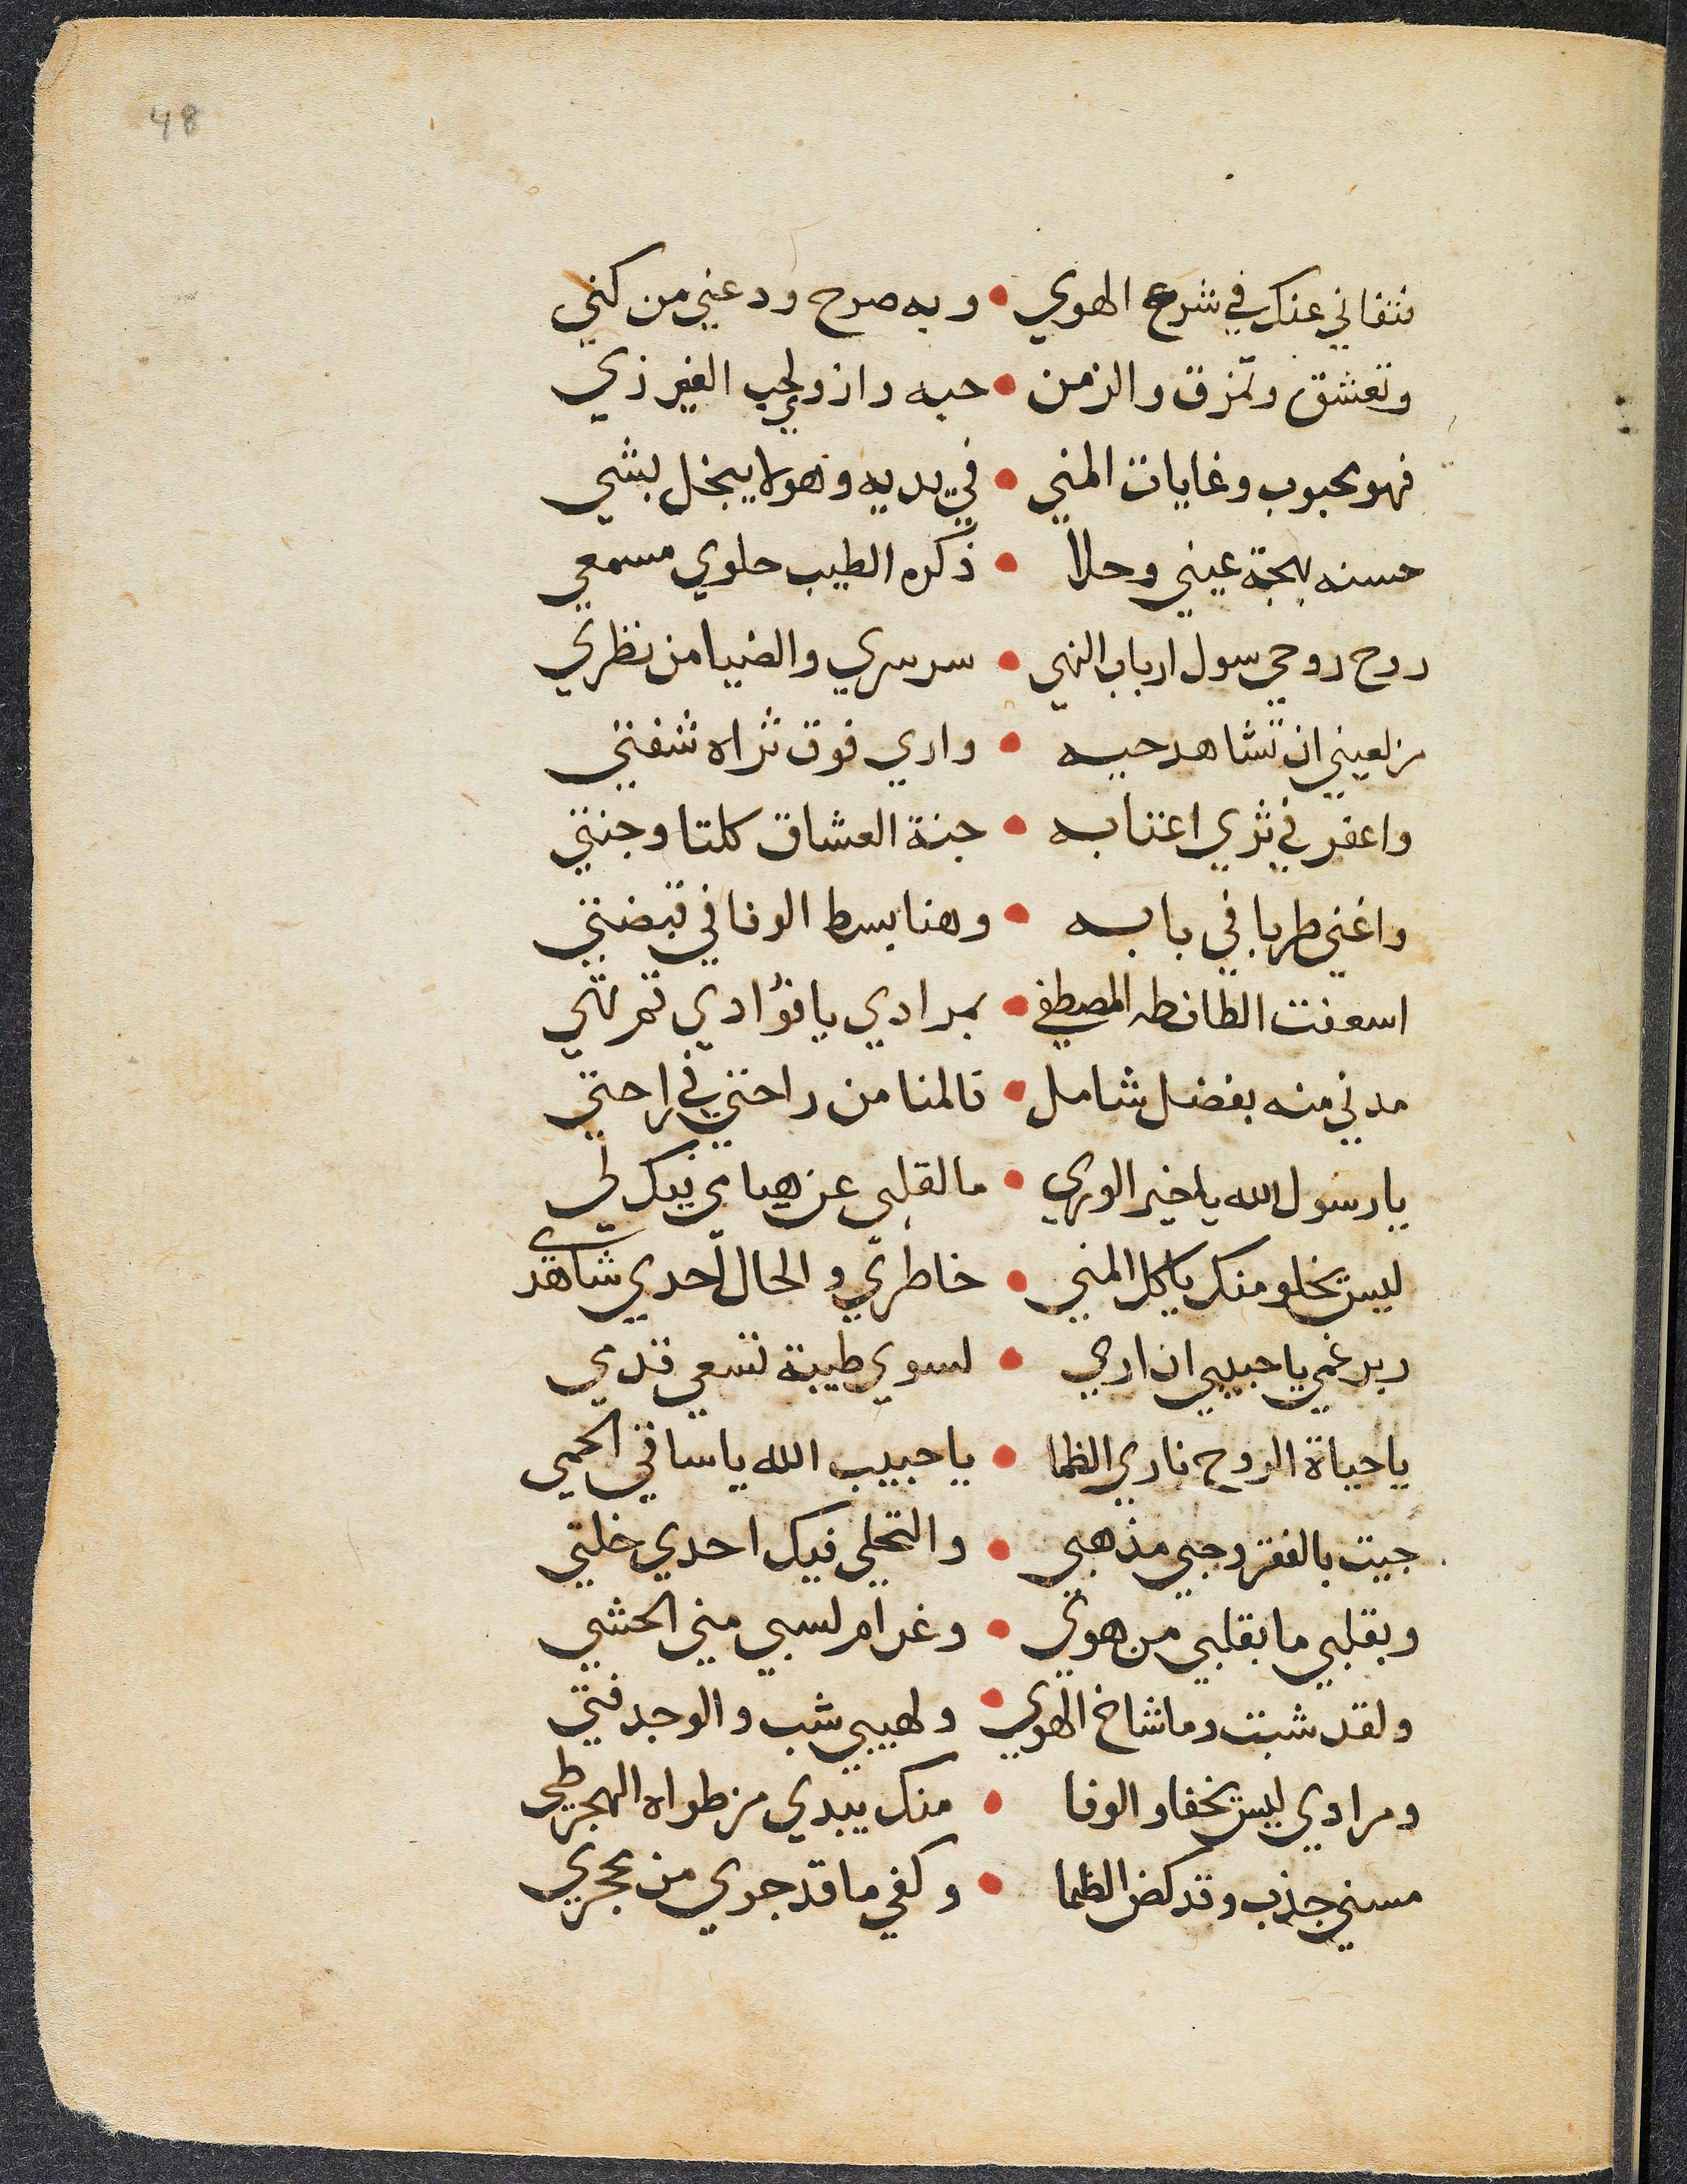 48
فتفاني عنك في شرع الهوي • وبه صرح ودعني من كني
وتعشق وتمزق والزمن • حبه وازو لحب الغير زي
فهو محبوب وغايات المني • في يديه وهو لا يبخل بشي
حسنه بهجة عيني وحلا • ذكره الطيب حلوي مسمعي
روح روحي سول ارباب النهي • سر سري والضيا من نظري
من لعيني ان تشاهد حيه • واري فوق ثراه شفتي
واعفر في ثري اعتابه • جنة العشاق كلتا وجنتي
واغني طربا في بابه • وهنا بسط الوفا في قبضتي
اسعفت الطاف طه المصطفي • بمرادي يا فؤادي تم تهي
مدني منه بفضل شامل • فالمنا من راحتي في راحتي
يا رسول الله يا خير الوري • ما لقلبي عن هيامي فيك لي
ليس يخلو منك يا كل المني • خاطري والحال احدي شاهدي
ربد غمي يا حبيبي ان اري • لسوي طيبة تسعي قدمي
يا حياة الروح ناري الظما • يا حبيب الله يا ساقي الحمي
جيت بالفقر وحبي مذهبي • والتحلي فيك احدي خلتي
وبقلبي ما بقلبي من هوي • وغرام لسبي مني الحشي
ولقد شبت وما شاخ الهوي • ولهيبي شب والوجد فتي
ومرادي ليس يخفا والوفا • منك يبدي من طواه الهجر طي
مسني جذب وقد كض الظما • وكفي ما قد جوي من محجري